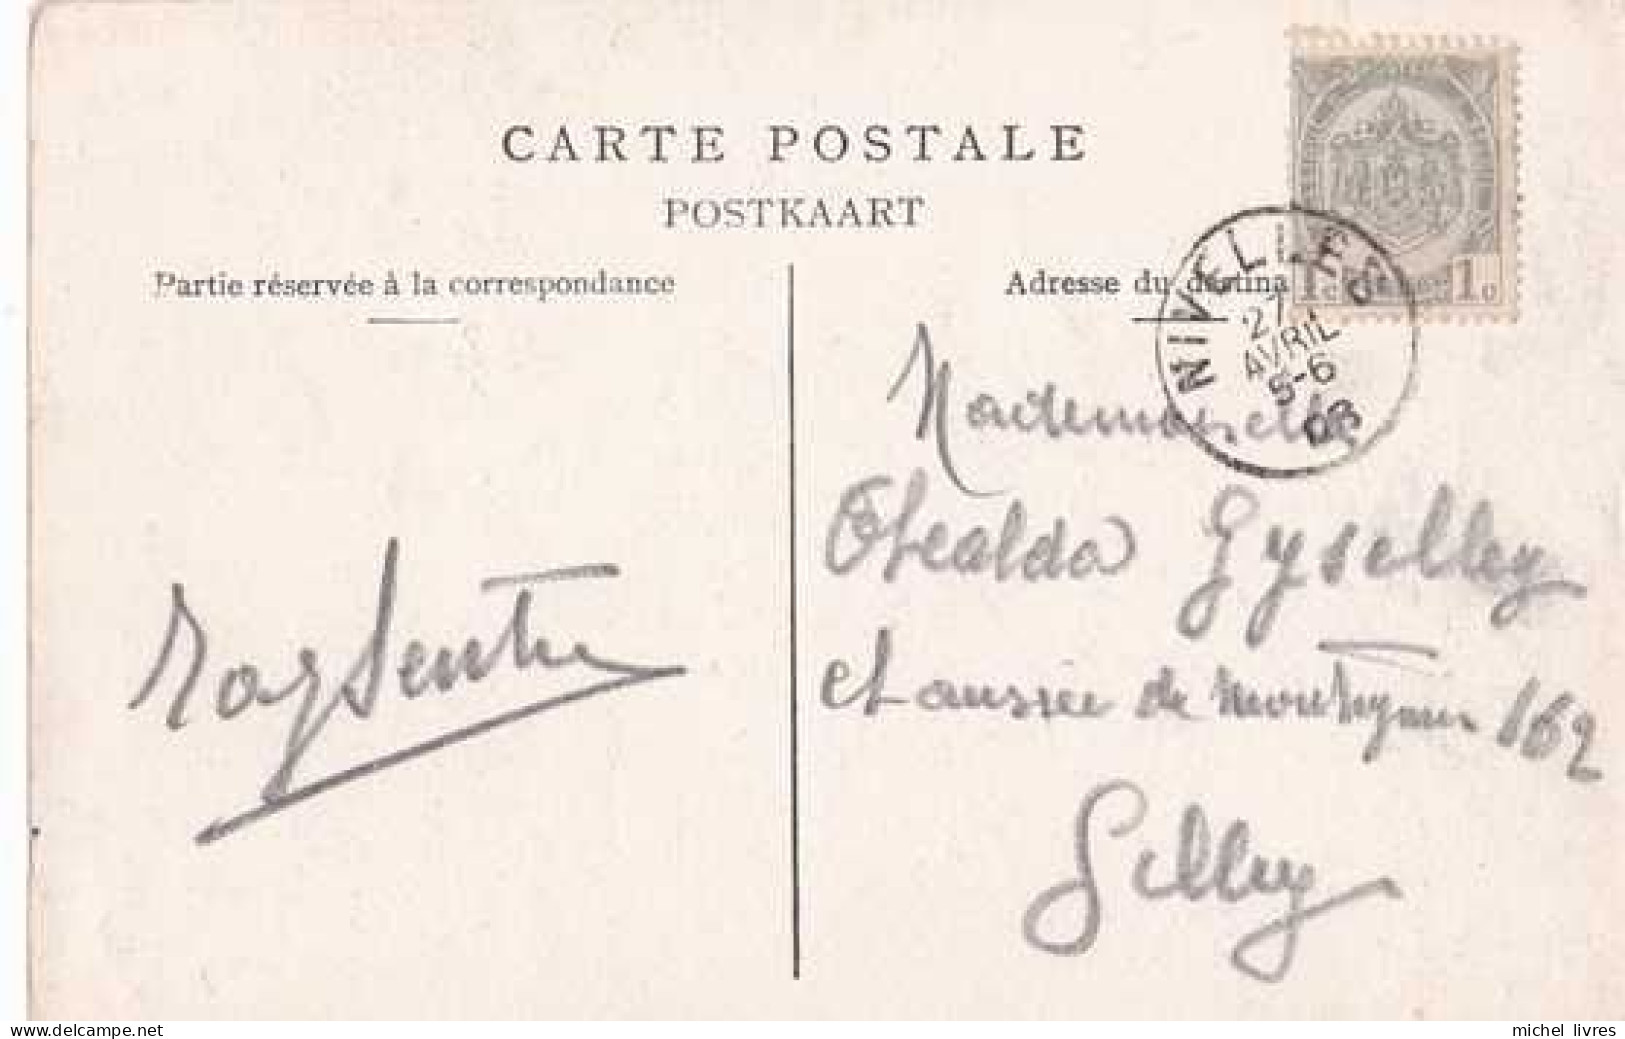 CARTE POSTALE
POSTKAART
Partie réservée à la correspondance
Adresse du destina
1c 1c
NIVELLES
27
AVRIL
5-6
08
Mademoiselle
chaussée de Montigny 162
Gilly
delcampe.net
michel_livres